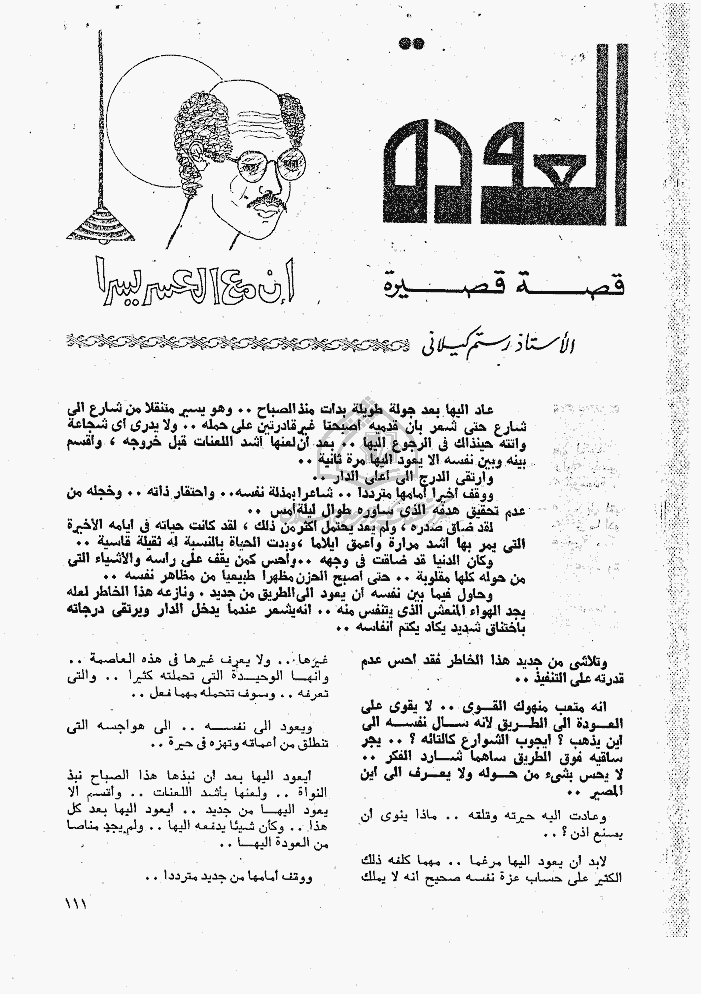 العودة
إن مع العسر يسرا
قصة قصيرة
الأستاذ رستم كيلاني
عاد اليها بعد جولة طويلة بدأت منذ الصباح .. وهو يسير متنقلا من شارع الى
شارع حتى شعر بأن قدميه أصبحتا غير قادرتين على حمله .. ولا يدرى أى شجاعة
واتته حينذاك فى الرجوع اليها .. بعد أن لعنها أشد اللعنات قبل خروجه ، وأقسم
بينه وبين نفسه ألا يعود اليها مرة ثانية ..
وارتقى الدرج الى أعلى الدار ..
ووقف أخيرا أمامها مترددا .. شاعرا بمذلة نفسه.. واحتقار ذاته .. وخجله من
عدم تحقيق هدفه الذى ساوره طوال ليلة أمس ..
لقد ضاق صدره ، ولم يعد يحتمل أكثر من ذلك ، لقد كانت حياته فى أيامه الأخيرة
التى يمر بها أشد مرارة وأعمق ايلاما ، وبدت الحياة بالنسبة له ثقيلة قاسية ..
وكأن الدنيا قد ضاقت فى وجهه .. وأحس كمن يقف على رأسه والأشياء التى
من حوله كلها مقلوبة .. حتى أصبح الحزن مظهرا طبيعيا من مظاهر نفسه ..
وحاول فيما بين نفسه أن يعود الى الطريق من جديد . ونازعه هذا الخاطر لعله
يجد الهواء المنعش الذى يتنفس منه .. انه يشعر عندما يدخل الدار ويرتقى درجاته
باختناق شديد يكاد يكتم أنفاسه ..
وتلاشى من جديد هذا الخاطر فقد أحس عدم
قدرته على التنفيذ ..
انه متعب منهوك القوى .. لا يقوى على
العودة الى الطريق لأنه سأل نفسه الى
أين يذهب ؟ أيجوب الشوارع كالتائه ؟ .. يجر
ساقيه فوق الطريق ساهما شارد الفكر ..
لا يحس بشىء من حوله ولا يعرف الى أين
المصير ..
وعادت اليه حيرته وقلقه .. ماذا ينوى أن
يصنع اذن ؟ ..
لابد أن يعود اليها مرغما .. مهما كلفه ذلك
الكثير على حساب عزة نفسه صحيح أنه لا يملك
غيرها .. ولا يعرف غيرها فى هذه العاصمة ..
وانها الوحيدة التى تحملته كثيرا .. والتى
تعرفه .. وسوف تتحمله مهما فعل ..
ويعود الى نفسه .. الى هواجسه التى
تنطلق من أعماقه وتهزه فى حيرة ..
أيعود اليها بعد أن نبذها هذا الصباح نبذ
النواة .. ولعنها بأشد اللعنات .. وأقسم ألا
يعود اليها من جديد .. أيعود اليها بعد كل
هذا .. وكأن شيئا يدفعه اليها .. ولم يجد مناصا
من العودة اليها ..
ووقف أمامها من جديد مترددا ..
١١١